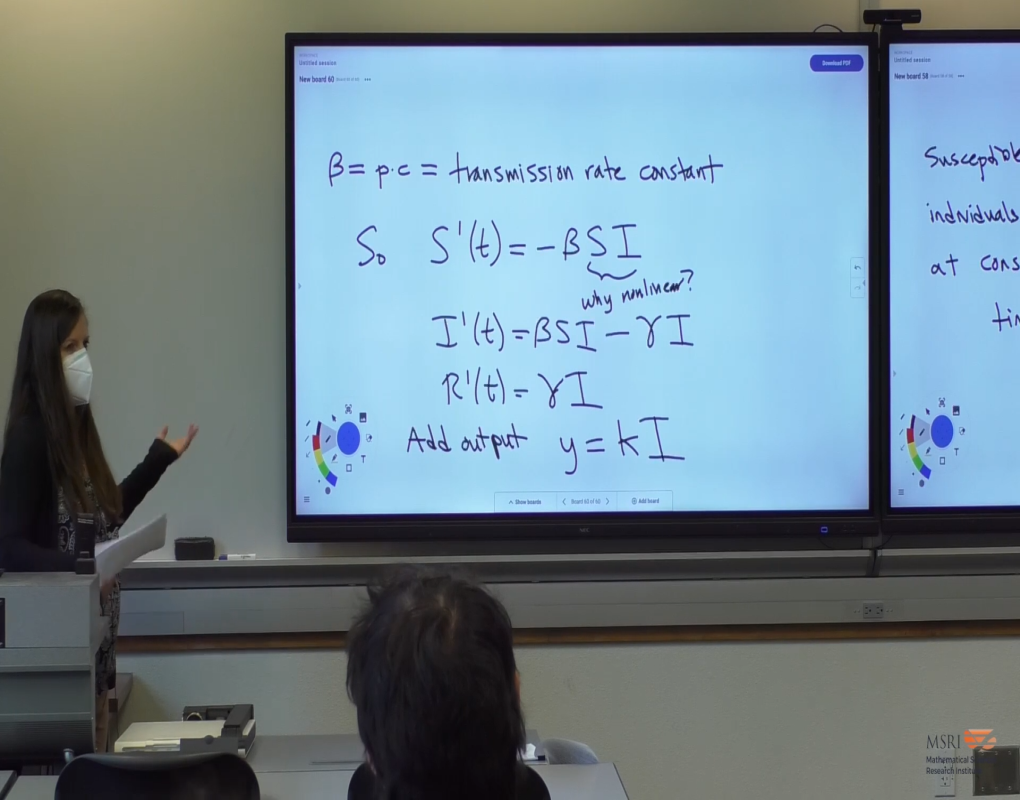 Untitled session
New board 60
Download PDF
β = p·c = transmission rate constant
So S'(t) = -βSI
why nonlinear?
I'(t) = βSI - γI
R'(t) = γI
Add output y = kI
Show boards
Board 60 of 60
Add board
Untitled session
New board 58
individuals
at
MSRI
Research